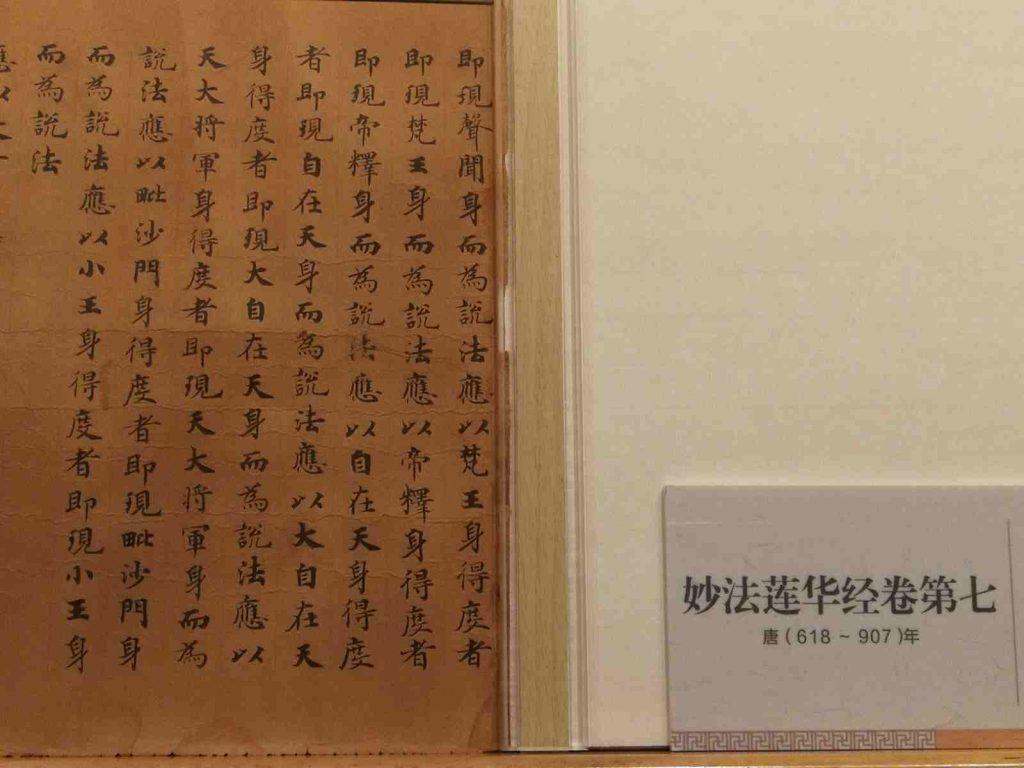 即現聲聞身而為說法應以梵王身得度者
即現梵王身而為說法應以帝釋身得度者
即現帝釋身而為說法應以自在天身得度
者即現自在天身而為說法應以大自在天
身得度者即現大自在天身而為說法應以
天大将軍身得度者即現天大将軍身而為
說法應以毗沙門身得度者即現毗沙門身
而為說法應以小王身得度者即現小王身
而為說法
妙法莲华经卷第七
唐(618 ~ 907)年